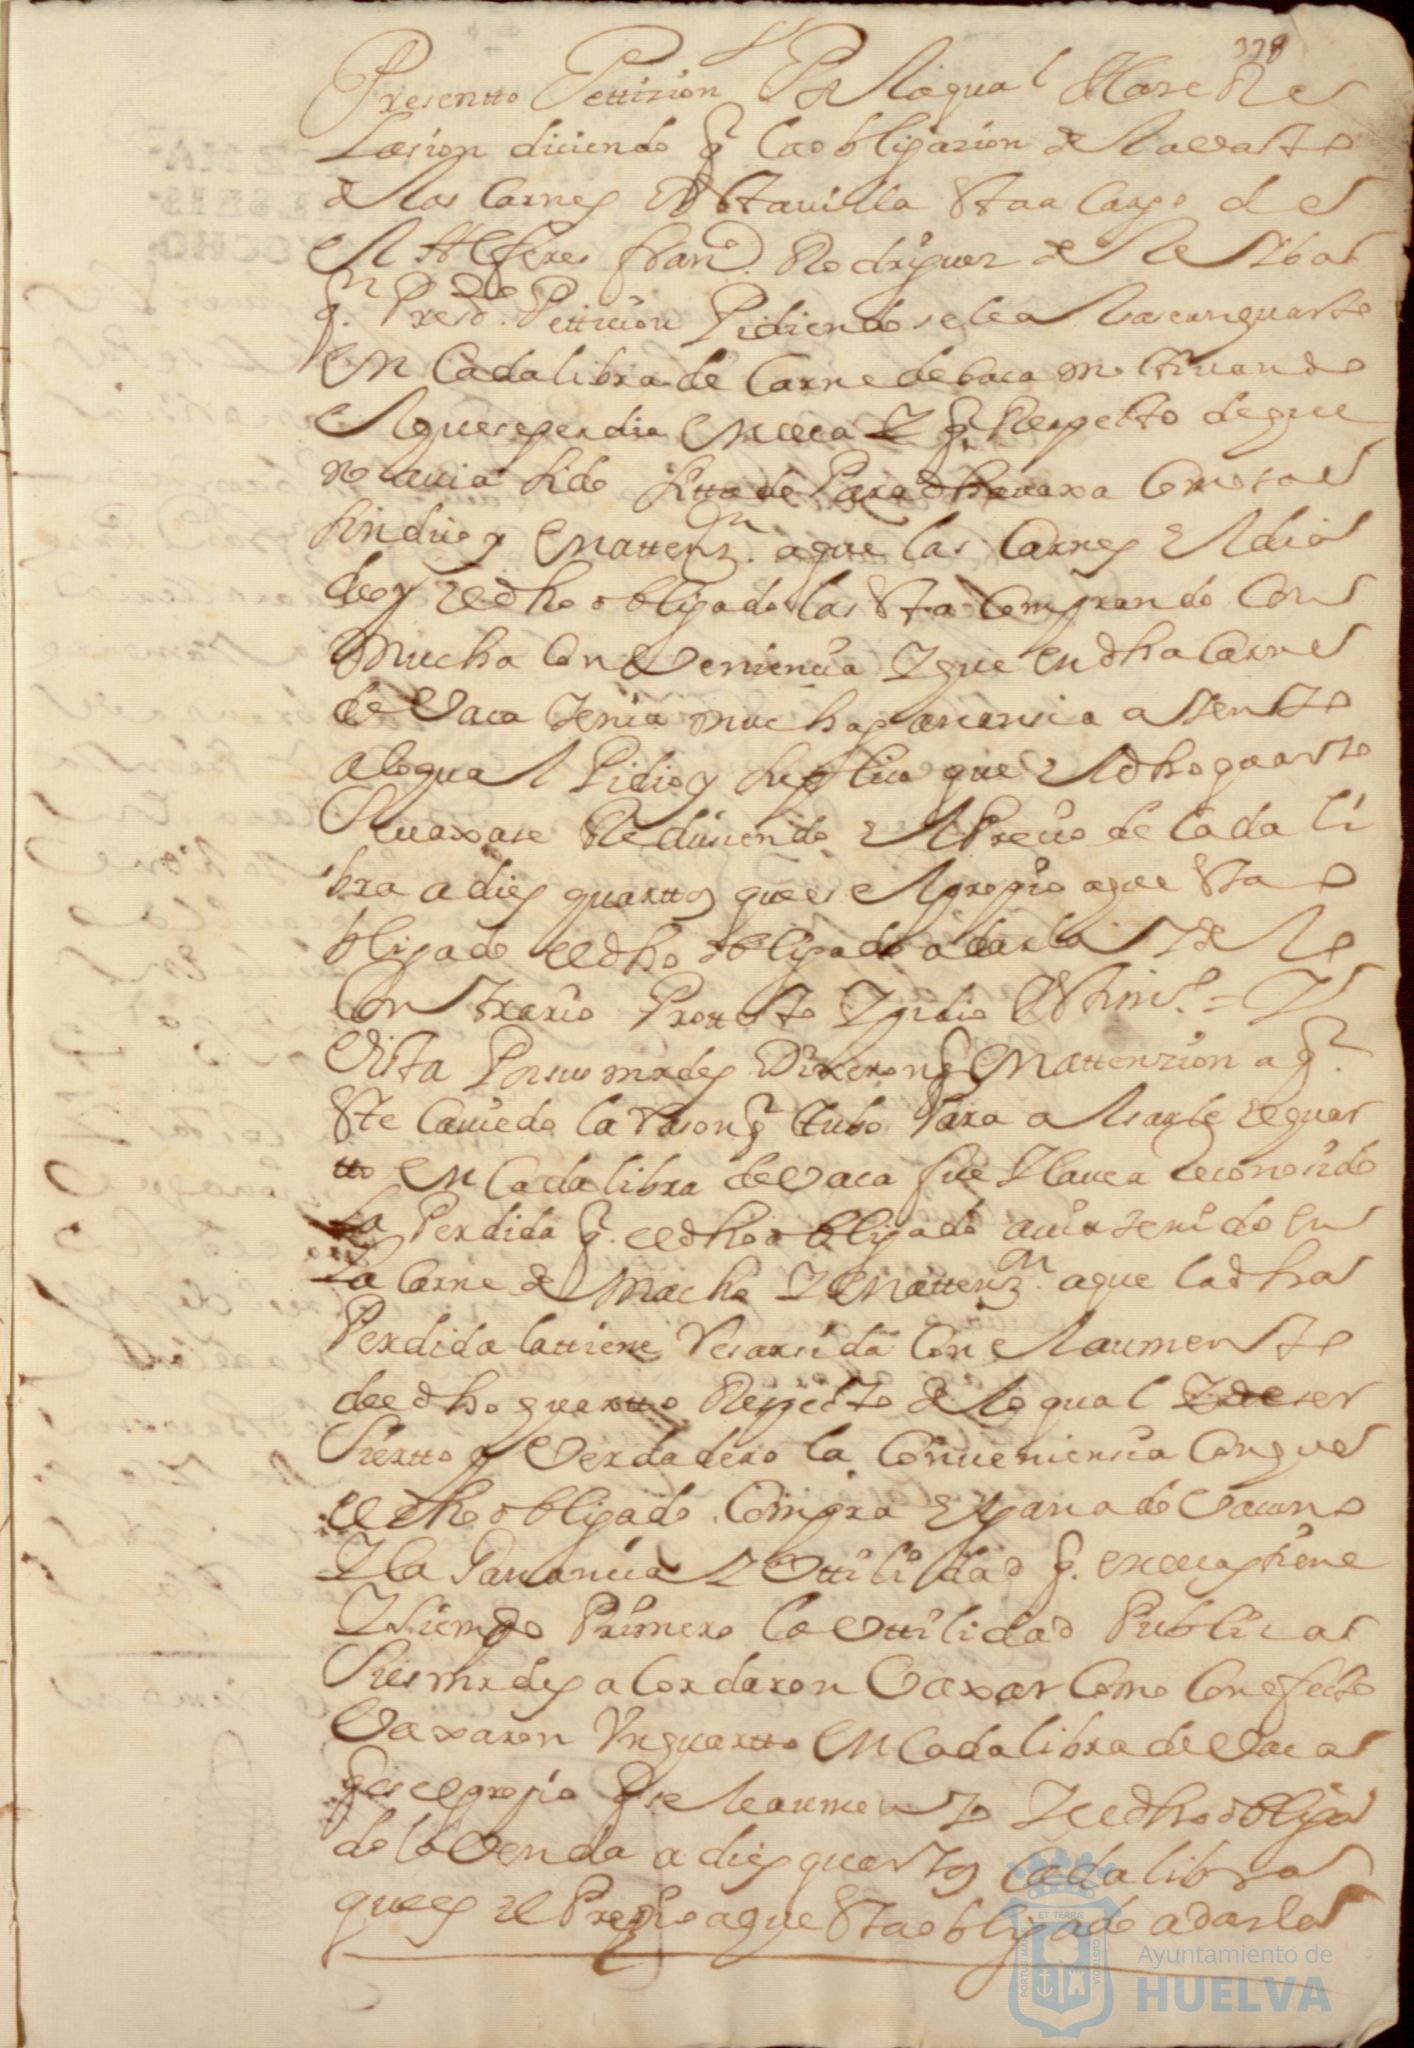 378
Presentto Pettizion Por la qual Hase Re
lasion diciendo q la obligazion de el avasto
de las Carnes de esta villa esta a Cargo de
el Alferes fran.co Rodriguez de
q.n Press.do Petticion Pidiendo se le a un quarto
En Cada libra de Carne de baca motivando
el que se perdia en ella y q Respecto de que
no avia sido para dha vaxa Como tal
sindico y En atten.on a que las Carnes el dia
de oy el dho obligado las esta Comprando Con
Mucha Conveniencia y que en dha Carne
de Vaca tenia mucha ganancia attento
a lo qual Pidio y suplico que el dho quarto
se vaxase Reduciendo el Precio de Cada li
bra a dies quarttos que es el propio a que esta o
bligado el dho obligado a darla y de lo
Contrario Protesto y pidio testim.o = Y
Vista Por sus mrdes Dixeron q En attenzion a q.
este Cavildo la rason q tubo Para alsarle el quar
tto en Cada libra de Vaca fue el aver reconosido
la Perdida q. el dho obligado avia tenido en
la Carne de Macho y En atten.on a que la dha
Perdida la ttiene resarsida Con el aumento
de el dho quartto Respecto de lo qual y de ser
Siertto y Verdadero la Conveniensia Con que
el dho obligado Compra el ganado Vacuno
y la Ganancia y Uttilidad q. en ella tiene
y siendo Primero la Uttilidad Publica
Sus mrdes acordaron Vaxar Como Con efecto
Vaxaron Un quartto En Cada libra de Vaca
q es el propio q se le aumento y el dho obliga
do la Venda a dies quartos cada libra
que es el Prezio a que esta obligado a darla
ET TERRAE
PORTUS MARIS
CUSTODIA
Ayuntamiento de
HUELVA